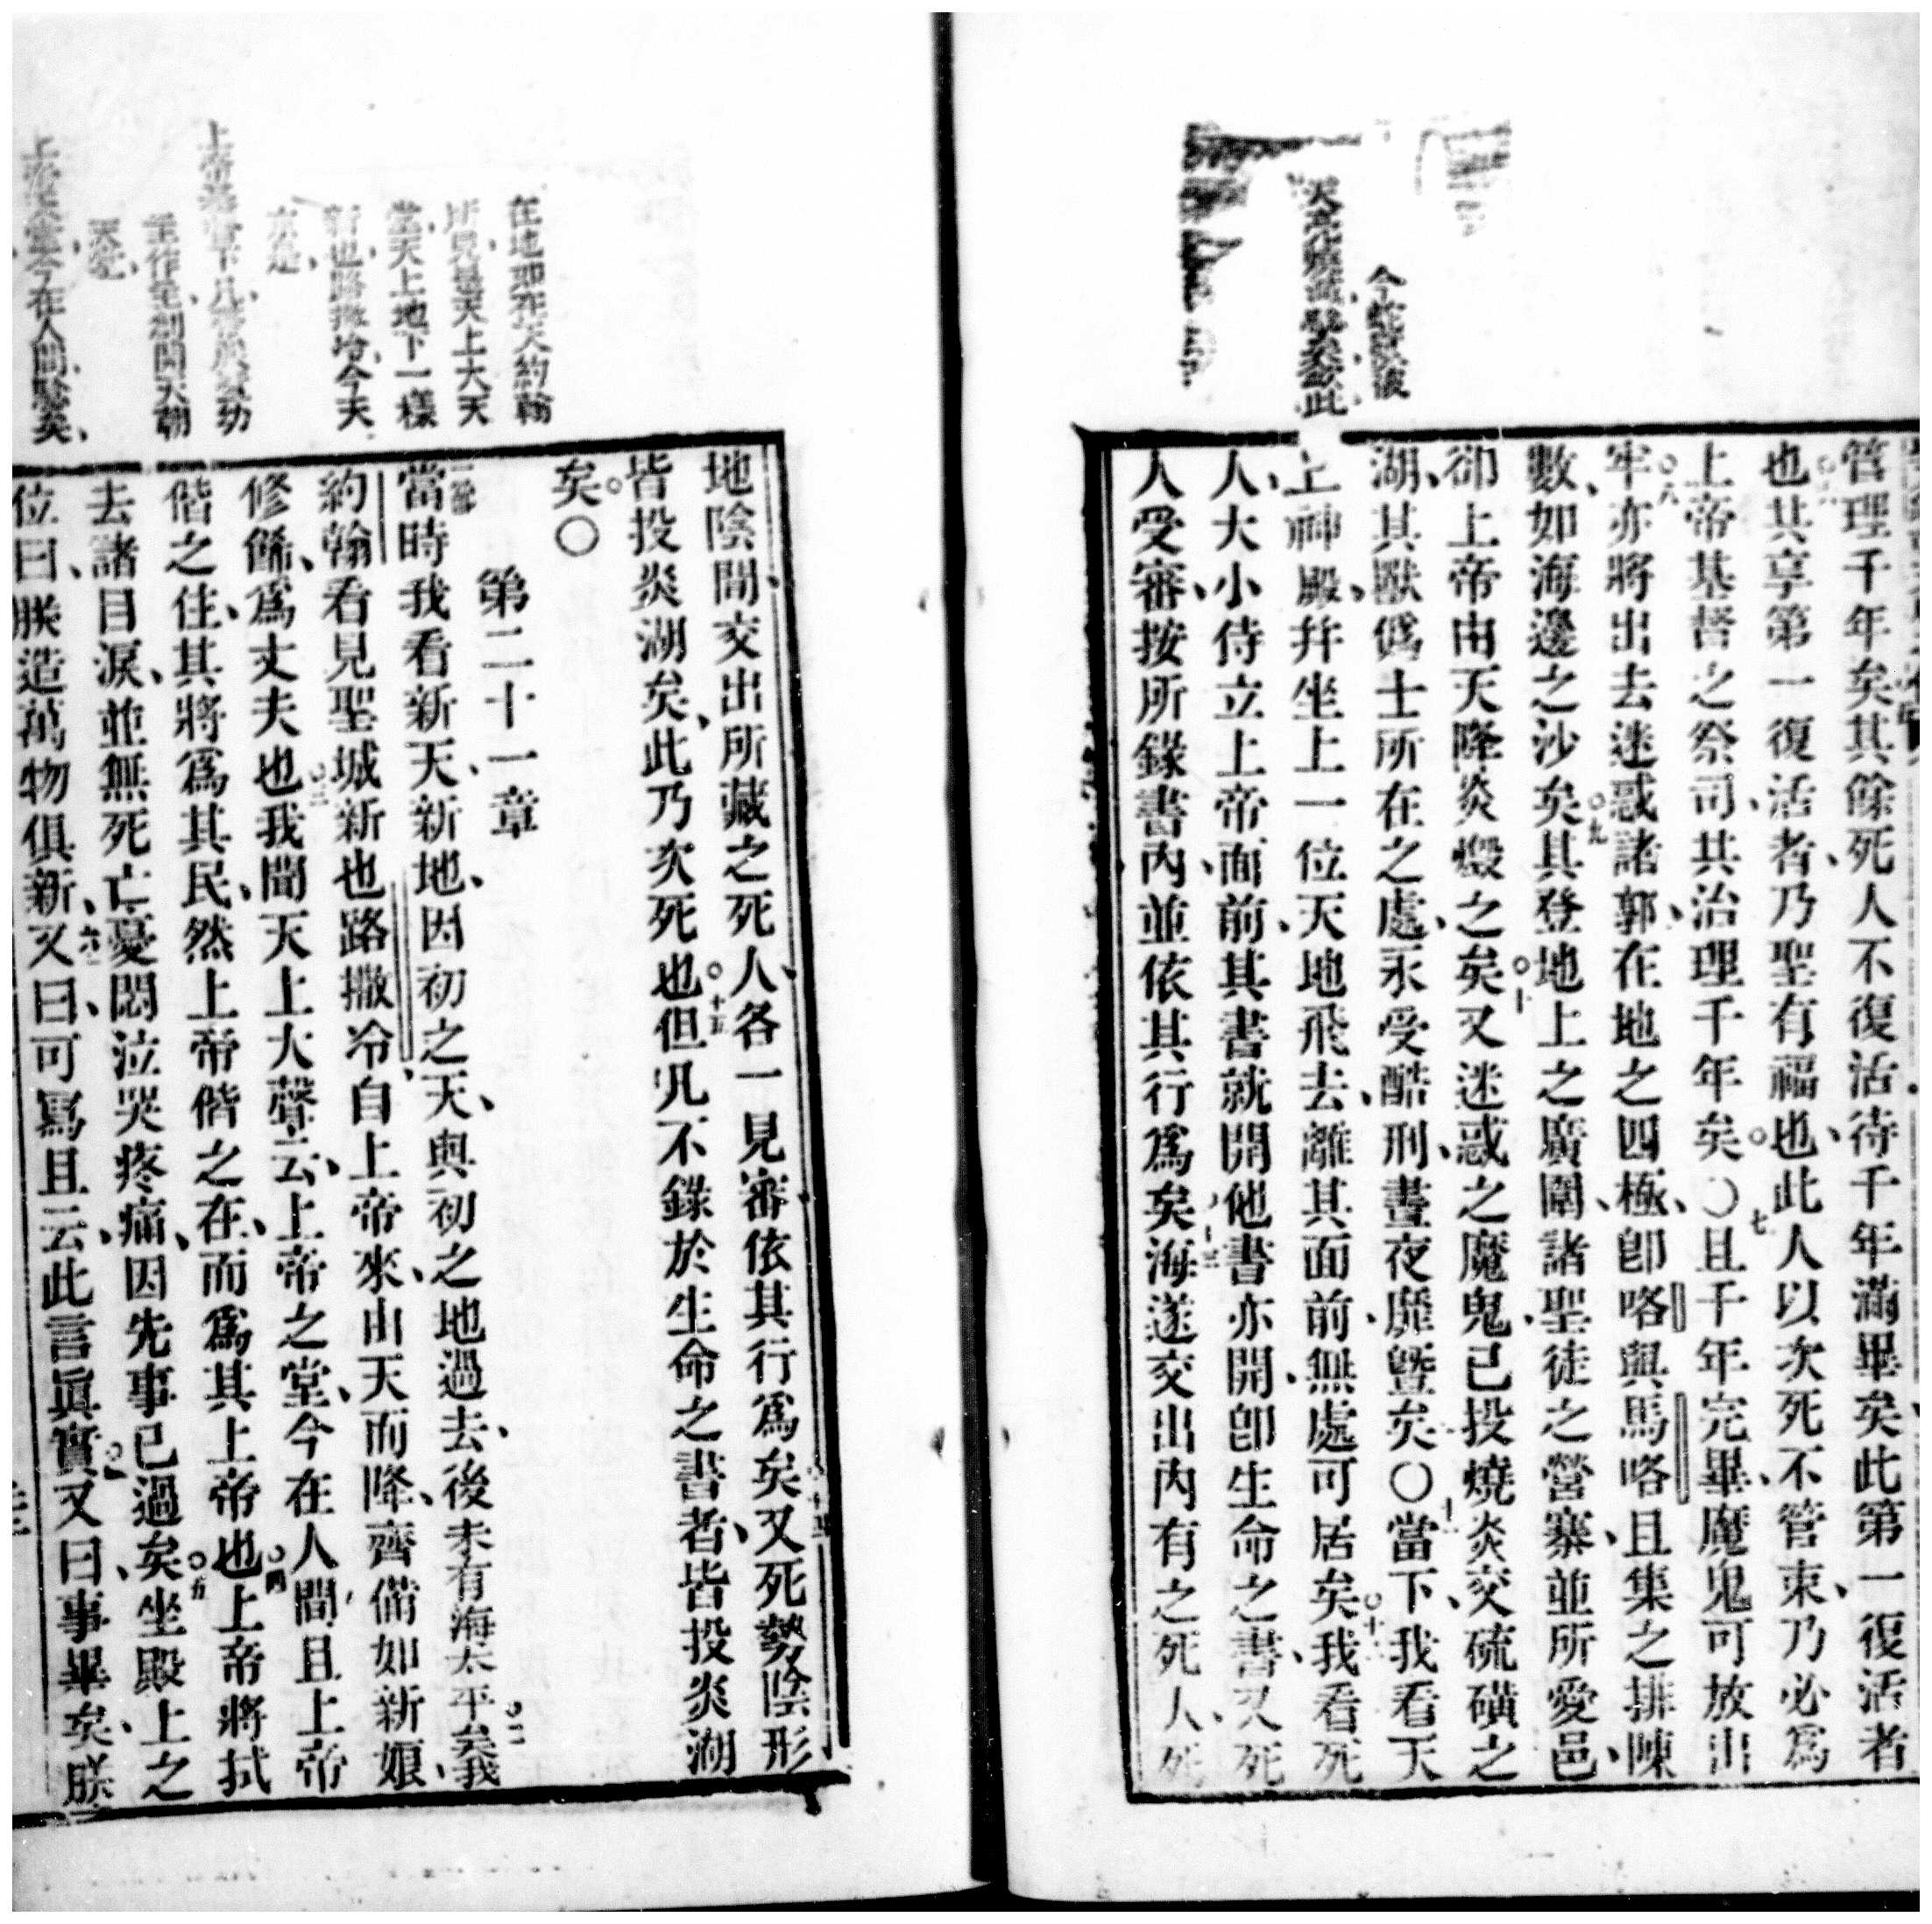 今蛇獸俱被
管理千年矣其餘死人不復活待千年滿畢矣此第一復活者
也其享第一復活者、乃聖有福也、此人以次死不管束、乃必為
上帝基督之祭司、其治理千年矣○七且千年完畢、魔鬼可放出
○八牢亦將出去迷惑諸郭、在地之四極、卽咯與馬咯且集之排陳
數、如海邊之沙矣○九其登地上之廣圍、諸聖徒之營寨、並所愛邑、
卻上帝由天降炎燬之矣○十又迷惑之魔鬼、已投燒炎交硫磺之
湖、其獸僞士所在之處、永受酷刑、晝夜靡曁矣○十一當下、我看天
上神殿、幷坐上一位天地飛去、離其面前、無處可居矣○十二我看死
人、大小侍立上帝面前、其書就開他書亦開、卽生命之書、又死
人受審、按所錄書內、並依其行爲矣○十三海遂交出內有之死人、死
在地卽在天約翰
所見是天上大天
堂、天上地下一樣
新也路撒冷今天
京是
地陰間交出所藏之死人、各一見審、依其行爲矣○十四又死勢陰形
皆投炎湖矣、此乃次死也○十五但凡不錄於生命之書者、皆投炎湖
矣○
第二十一章
一節當時我看新天、新地、因初之天、與初之地過去、後未有海太平矣○二我
約翰看見聖城新也路撒冷、自上帝來、由天而降、齊備如新娘、
修餙、爲丈夫也○三我聞天上大聲云、上帝之堂、今在人間、且上帝
偕之住、其將爲其民、然上帝偕之在、而爲其上帝也○四上帝將拭
去諸目淚、並無死亡憂悶泣哭疼痛、因先事已過矣○五坐殿上之
位曰、朕造萬物俱新、又曰、可寫且云、此言眞實○六又曰、事畢矣、朕